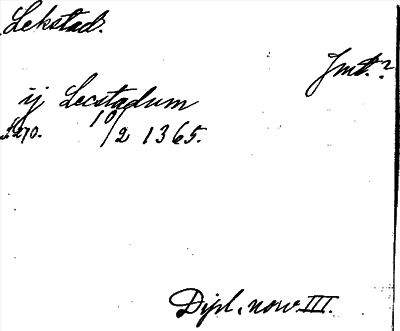 Lekstad.
Jmt.?
ij Lecstadum
S. 270. 10/2 1365.
Dipl. norv. III.